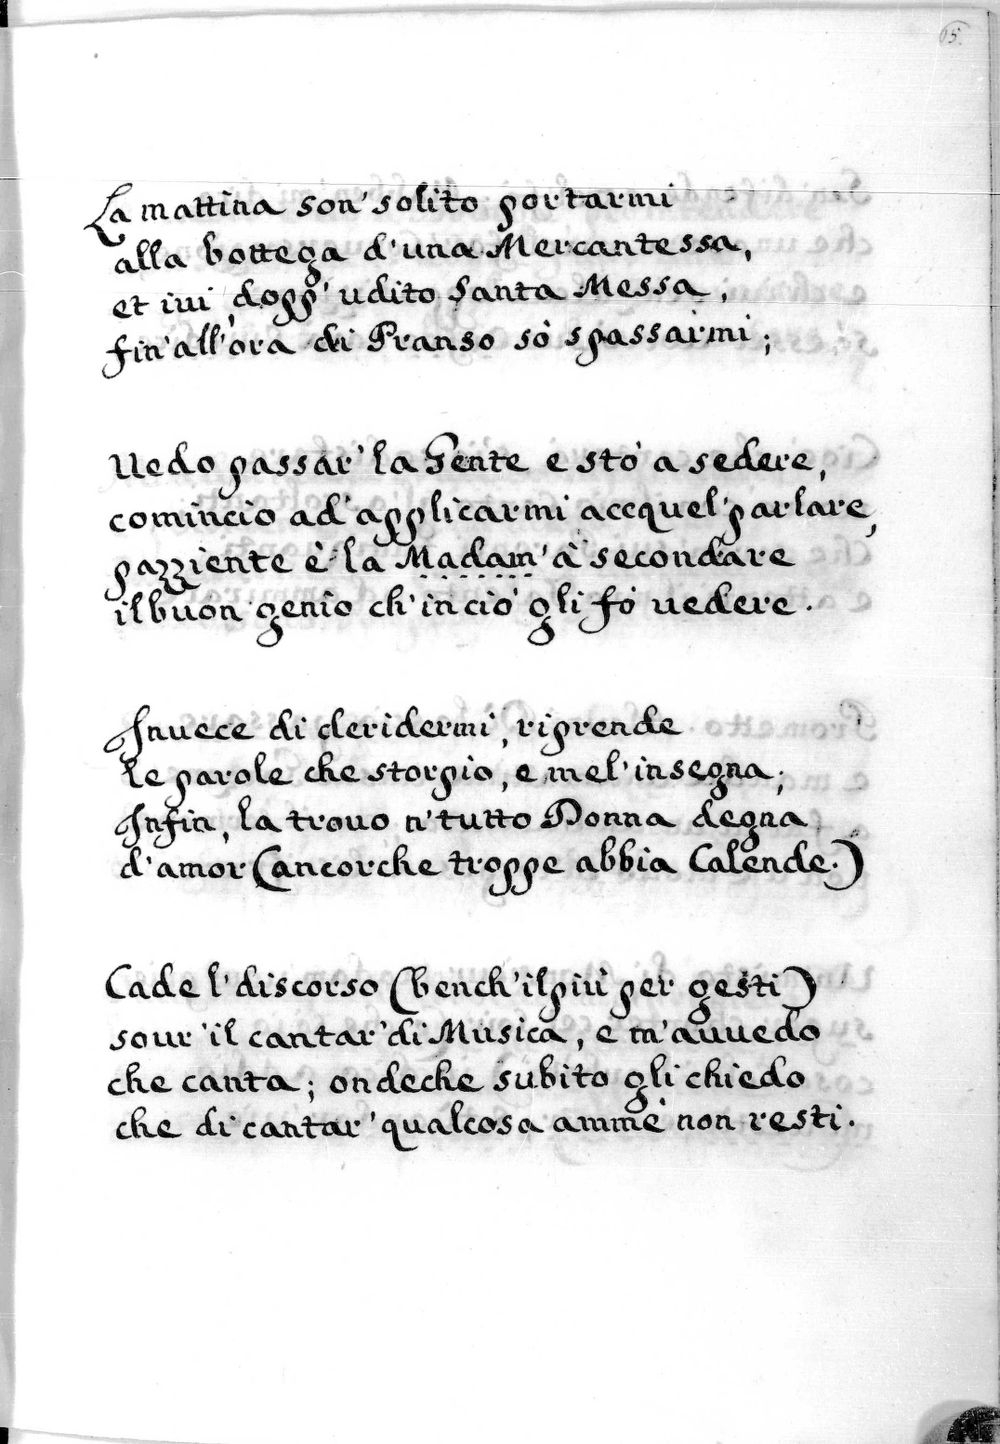 15.
La mattina son' solito portarmi
alla bottega d'una Mercantessa,
et iui, dopp' udito Santa Messa,
fin'all'ora di Pranso sò spassarmi;
Uedo passar' la Gente e stò a sedere,
comincio ad' applicarmi accquel' parlare,
pazziente è la Madam' à secondare
il buon' genio ch'in ciò gli fò uedere.
Inuece di deridermi, riprende
le parole che storpio, e mel' insegna;
Infin, la trouo n'tutto Donna degna
d'amor (ancorche troppe abbia Calende.)
Cade l'discorso (bench'il più per gesti)
sour'il cantar' di Musica, e m'auuedo
che canta; ondeche subito gli chiedo
che di cantar' qualcosa ammè non resti.